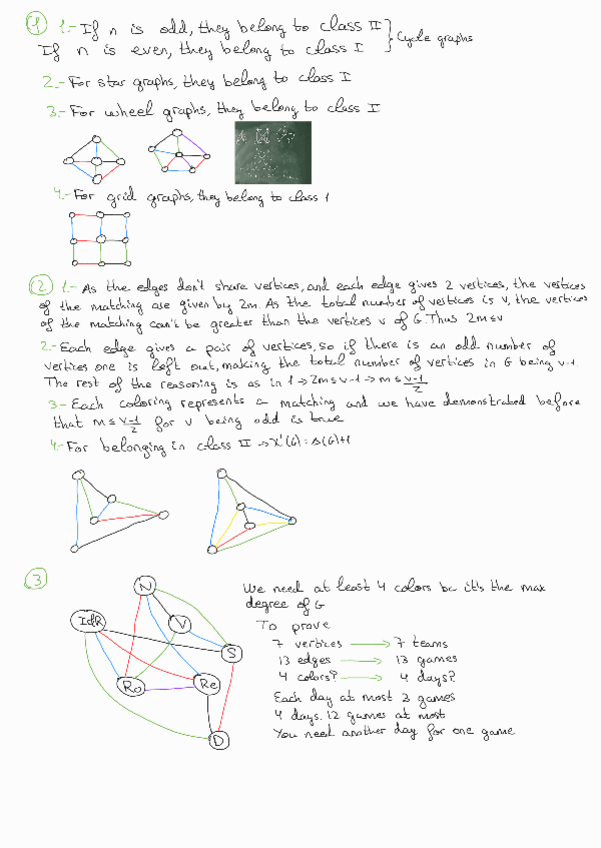 1 1.- If n is odd, they belong to class II
If n is even, they belong to class I
} Cycle graphs
2.- For star graphs, they belong to class I
3.- For wheel graphs, they belong to class I
4.- For grid graphs, they belong to class 1
2 1.- As the edges don't share vertices, and each edge gives 2 vertices, the vertices
of the matching are given by 2m. As the total number of vertices is v, the vertices
of the matching can't be greater than the vertices v of G. Thus 2m≤v
2.- Each edge gives a pair of vertices, so if there is an odd number of
vertices one is left out, making the total number of vertices in G being v-1.
The rest of the reasoning is as in 1 → 2m≤v-1 → m≤ v-1/2
3.- Each coloring represents a matching and we have demonstrated before
that m≤ v-1/2 for v being odd is true
4.- For belonging in class II → χ'(G)=Δ(G)+1
3
N
IdR
V
S
Ro
Re
D
We need at least 4 colors bc it's the max
degree of G
To prove
7 vertices → 7 teams
13 edges → 13 games
4 colors? → 4 days?
Each day at most 3 games
4 days. 12 games at most
You need another day for one game